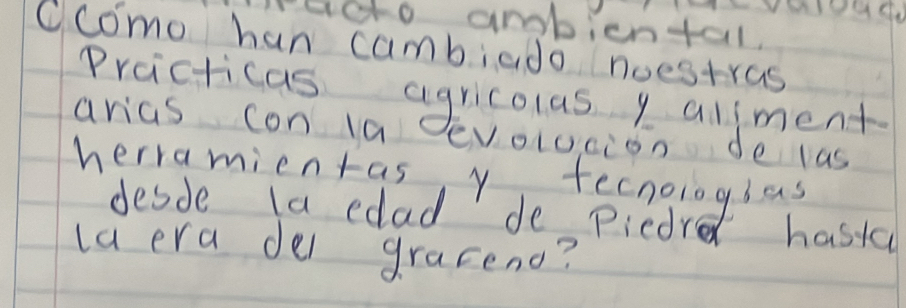 ambiental.
¿cómo han cambiado nuestras
Practicas agricolas y aliment-
arias con la evolución de las
herramientas y tecnologias
desde la edad de Piedra hasta
la era del grafeno?